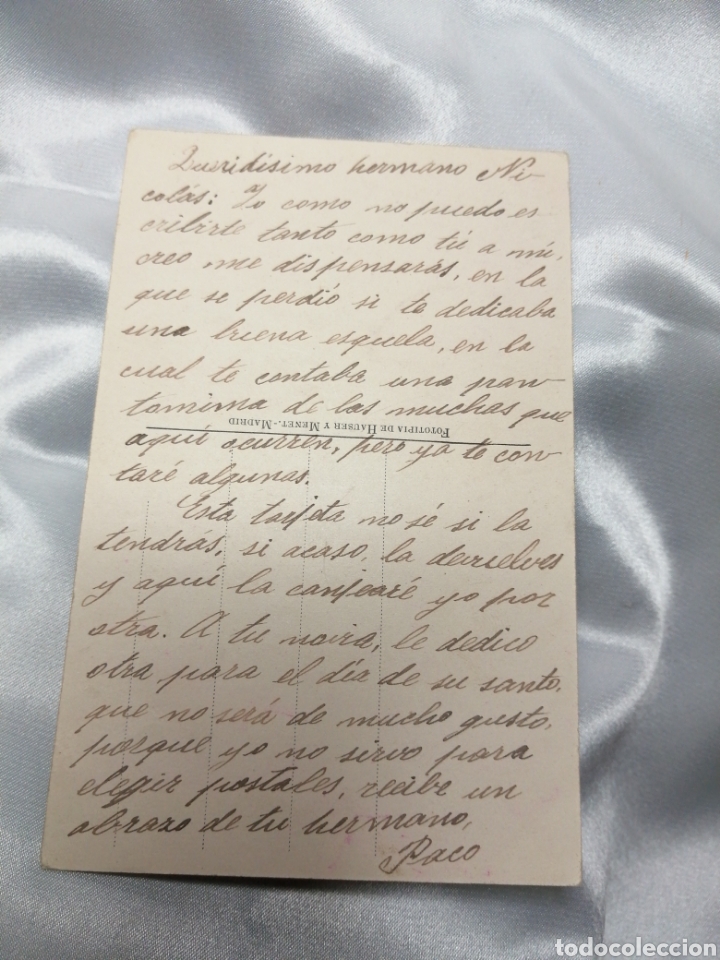 Queridísimo hermano Ni-
colás: Yo como no puedo es
cribirte tanto como tú a mí,
creo me dispensarás, en la
que se perdió si te dedicaba
una buena esquela, en la
cual te contaba una pan-
tomima de las muchas que
FOTOTIPIA DE HAUSER Y MENET.-MADRID
aquí ocurren, pero ya te con-
taré algunas.
Esta tarjeta no sé si la
tendras, si acaso, la devuelves
y aquí la canjearé yo por
otra. A tu novia, le dedico
otra para el día de su santo,
que no será de mucho gusto,
porque yo no sirvo para
elegir postales, recibe un
abrazo de tu hermano,
Paco
todocoleccion